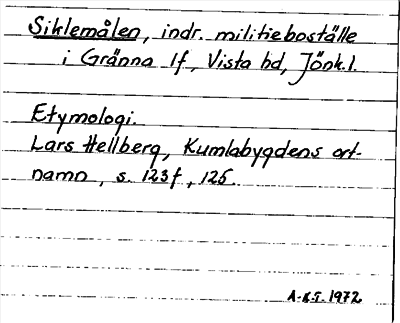 Siklemålen, indr. militieboställe
i Gränna lf, Vista hd, Jönk.l.
Etymologi.
Lars Hellberg, Kumlabygdens ort-
namn, s. 123f, 125.
A-K.T. 1972